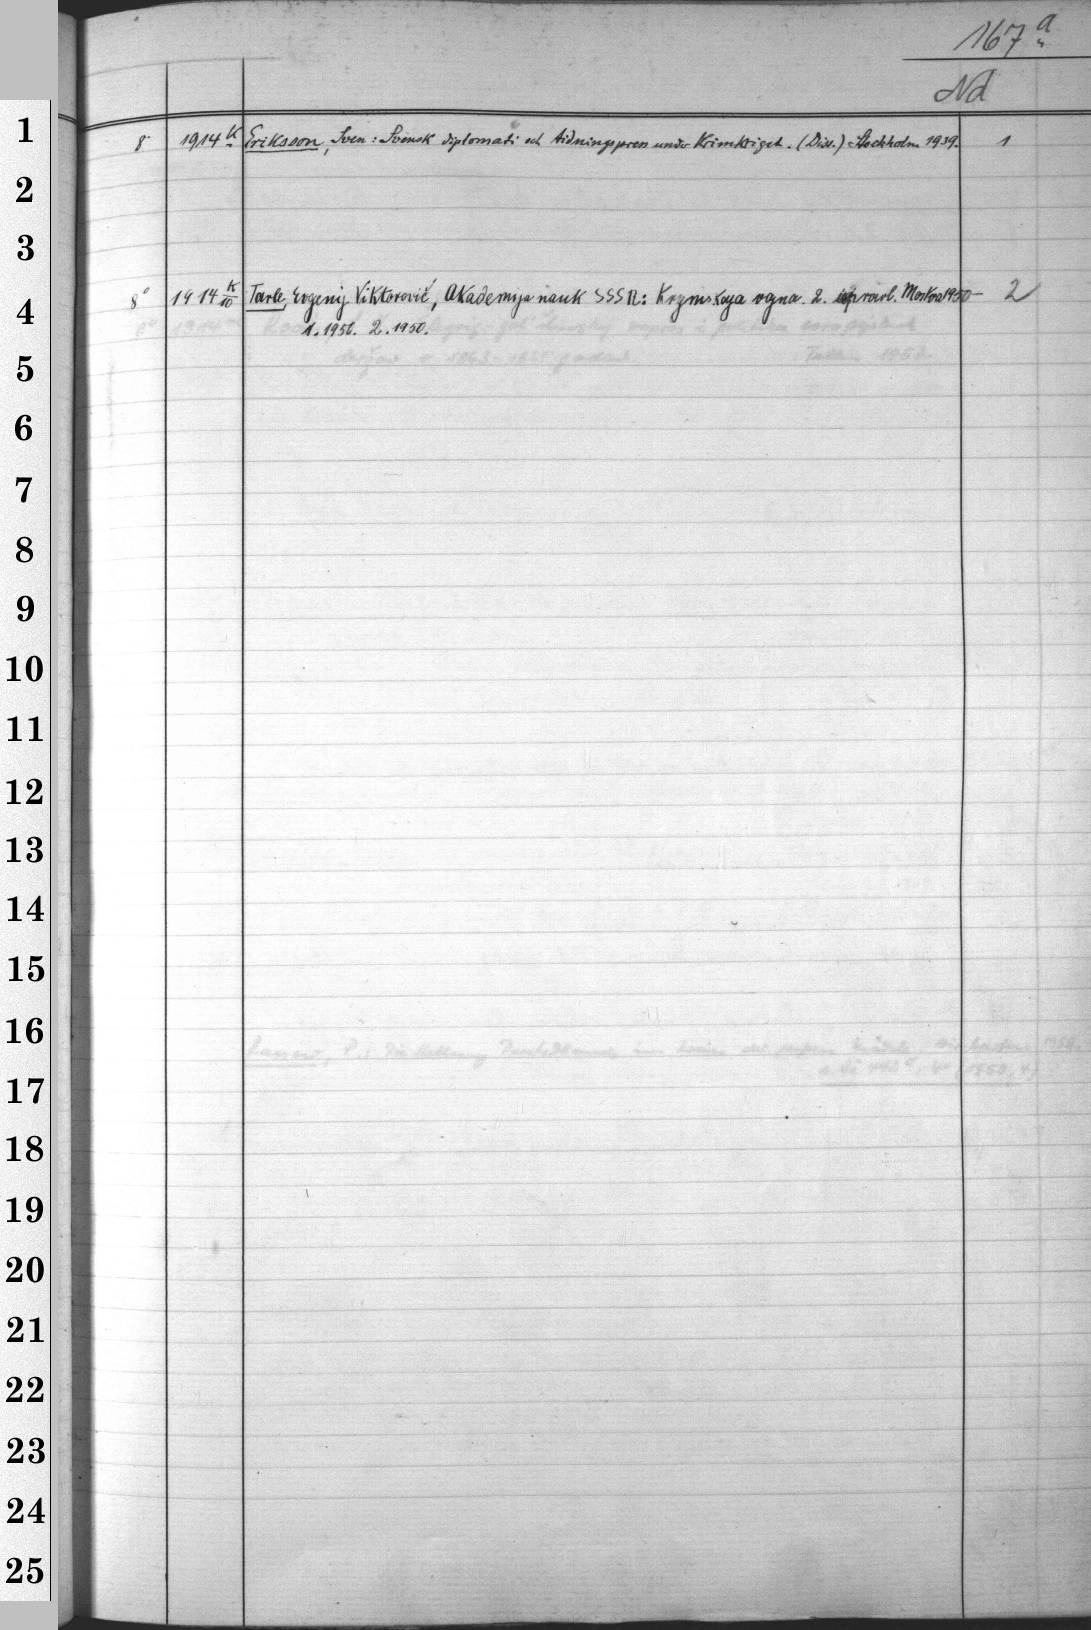 167 a
Nd
1
8° 1914 K Eriksson, Sven: Svensk diplomati och tidningspress under Krimkriget. (Diss.) Stockholm 1939. 1
2
3
4
8° 1914 K/10 Tarle, Evgenij Viktorovič, Akademija nauk SSSR: Krymskaja vojna. 2. ispravl. Moskva 1950- 2
1. 1950. 2. 1950.
5
6
7
8
9
10
11
12
13
14
15
16
17
18
19
20
21
22
23
24
25